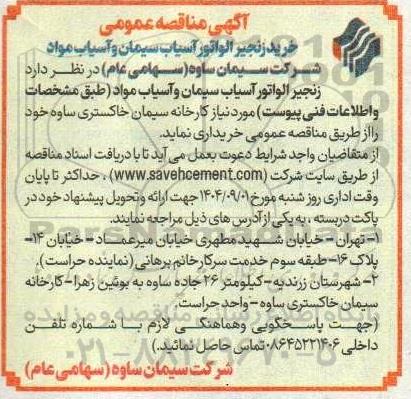 آگهی مناقصه عمومی
خرید زنجیر الواتور آسیاب سیمان و آسیاب مواد
شرکت سیمان ساوه (سهامی عام) در نظر دارد
زنجیر الواتور آسیاب سیمان و آسیاب مواد (طبق مشخصات
و اطلاعات فنی پیوست) مورد نیاز کارخانه سیمان خاکستری ساوه خود
را از طریق مناقصه عمومی خریداری نماید.
از متقاضیان واجد شرایط دعوت بعمل می آید تا با دریافت اسناد مناقصه
از طریق سایت شرکت (www.savehcement.com) ، حداکثر تا پایان
وقت اداری روز شنبه مورخ ۱۴۰۴/۰۹/۰۱ جهت ارائه و تحویل پیشنهاد خود در
پاکت دربسته ، به یکی از آدرس های ذیل مراجعه نمایند.
۱- تهران - خیابان شهید مطهری خیابان میرعماد - خیابان ۱۴-
پلاک ۱۶- طبقه سوم خدمت سرکار خانم برهانی (نماینده حراست).
۲- شهرستان زرندیه - کیلومتر ۲۶ جاده ساوه به بوئین زهرا - کارخانه
سیمان خاکستری ساوه - واحد حراست.
(جهت پاسخگویی و هماهنگی لازم با شماره تلفن
داخلی ۰۸۶۴۵۲۲۱۴۰۶ تماس حاصل نمائید.)
شرکت سیمان ساوه (سهامی عام)